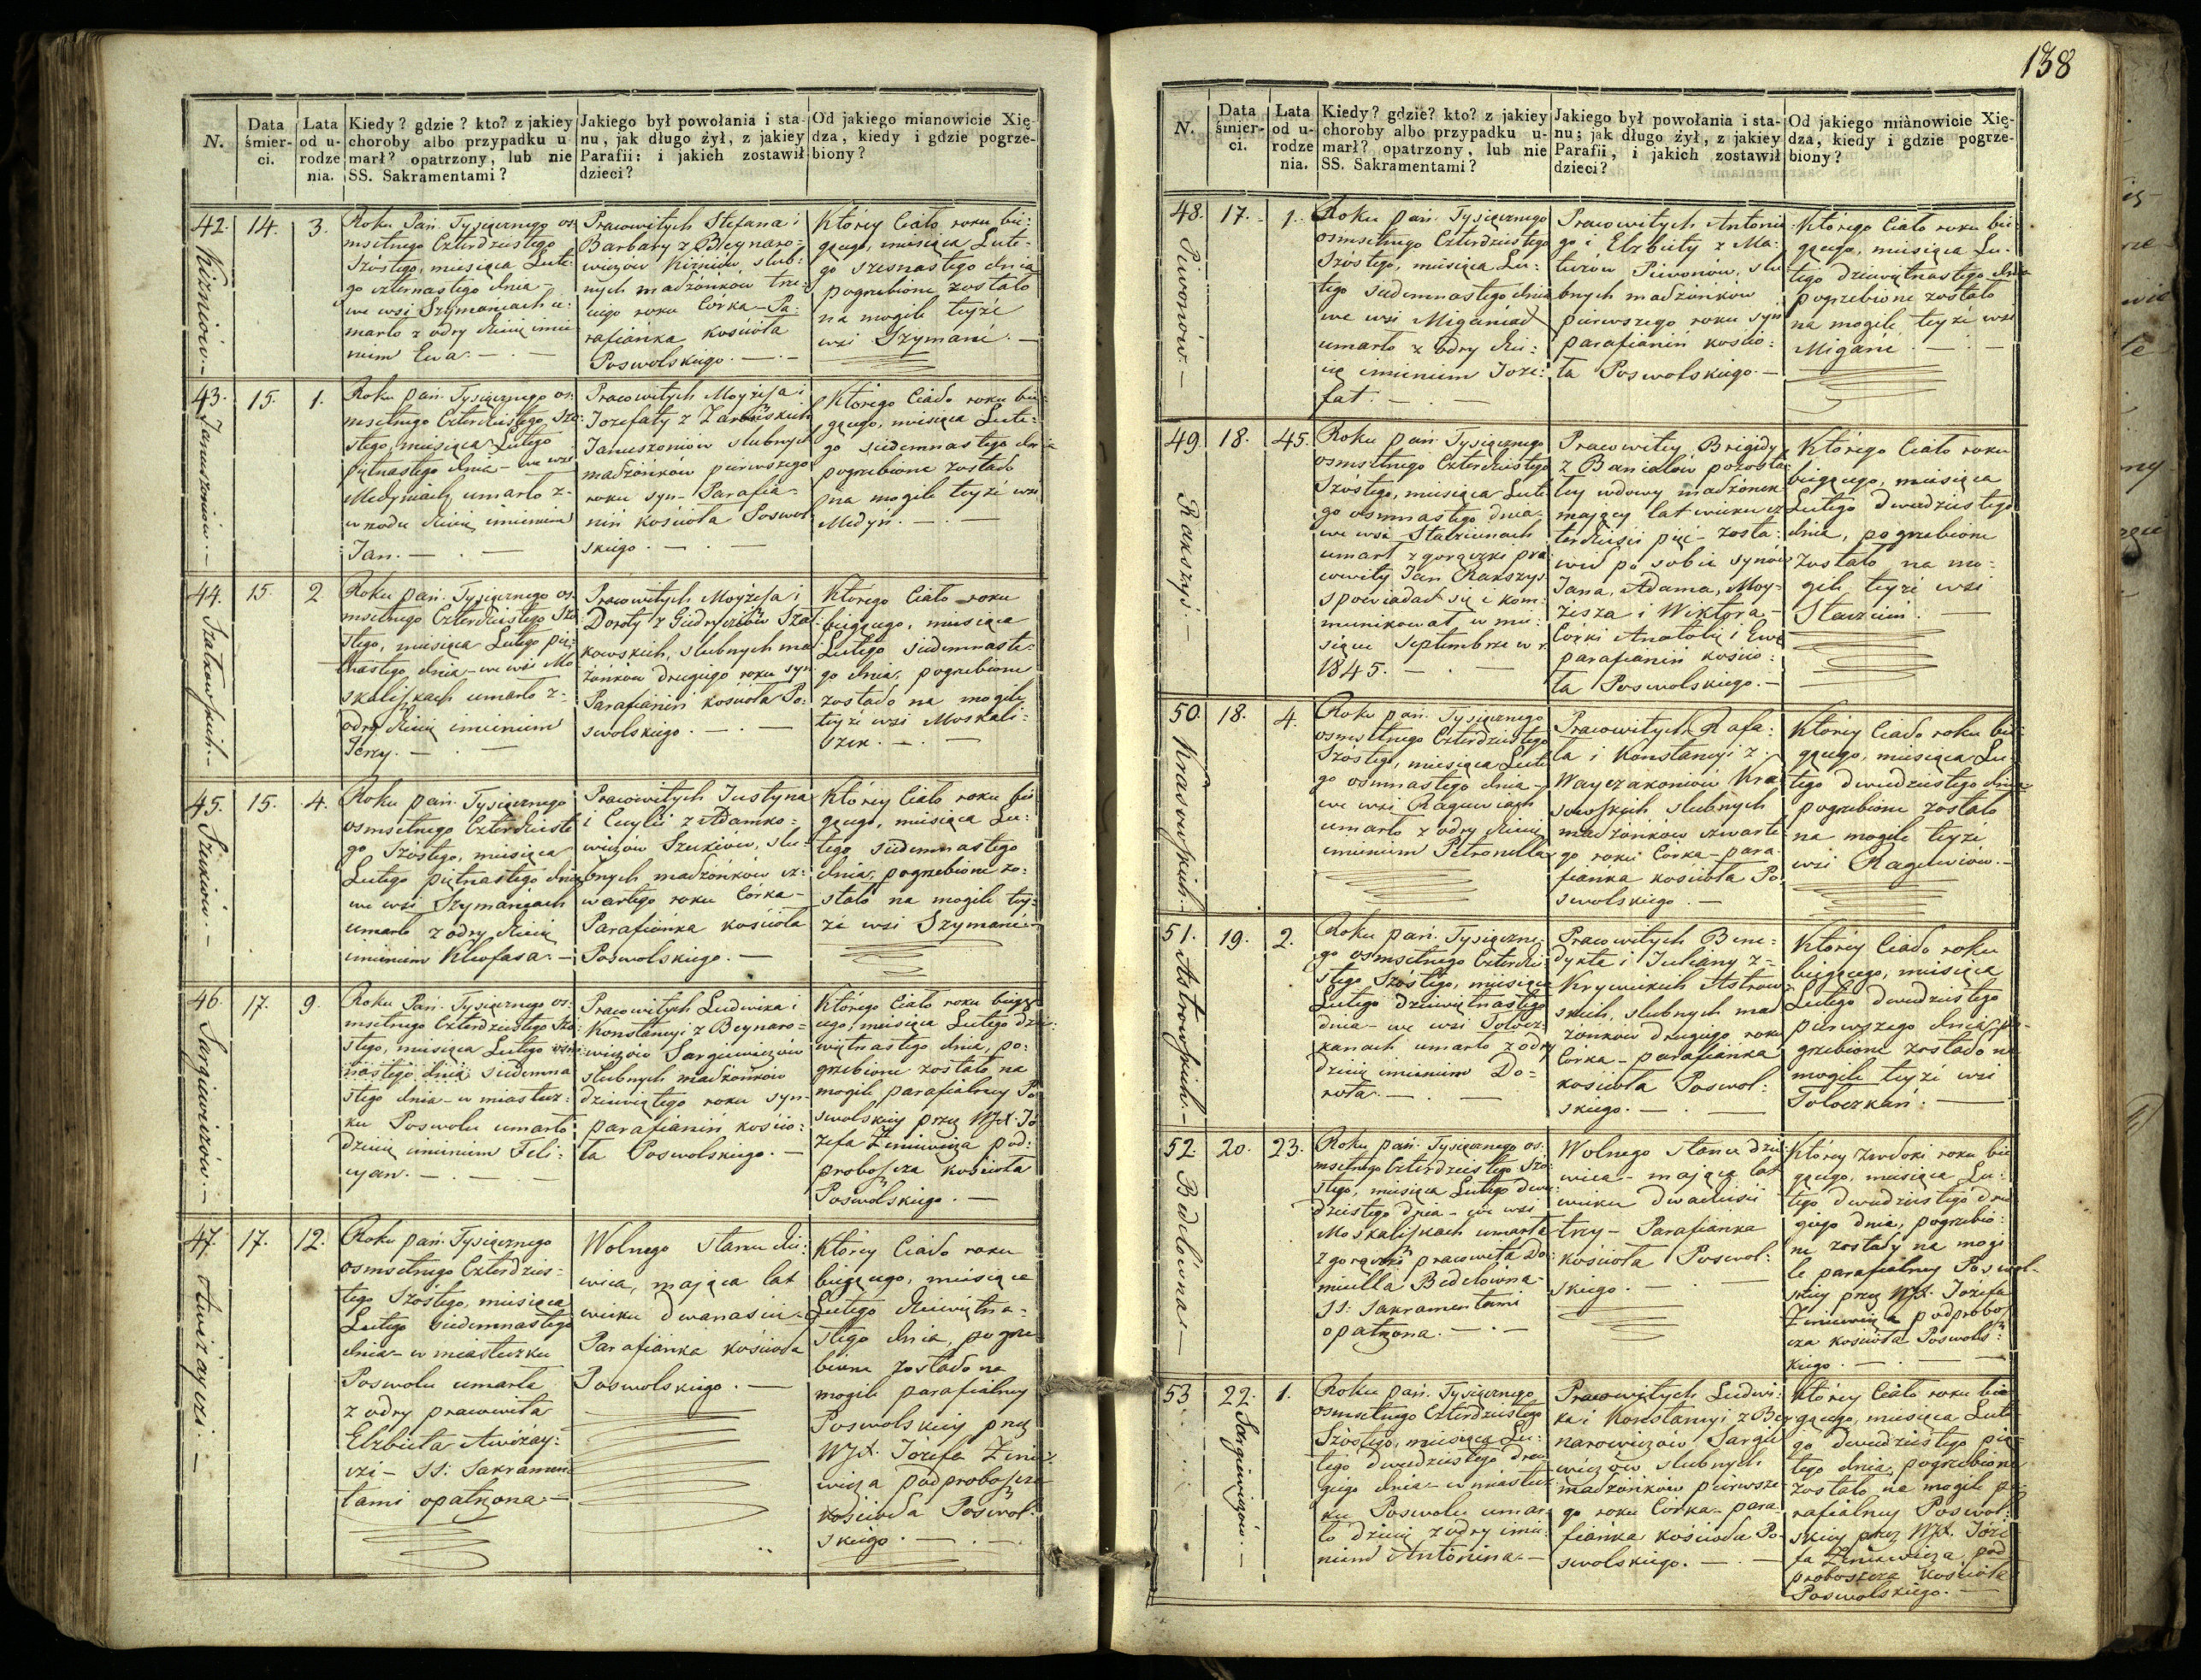 N.
Data
śmier-
ci.
Lata
od u-
rodze
nia.
Kiedy? gdzie? kto? z jakiey
choroby albo przypadku u
marł? opatrzony, lub nie
SS. Sakramentami?
Jakiego był powołania i sta-
nu, jak długo żył, z jakiey
Parafii: i jakich zostawił
dzieci?
Od jakiego mianowicie Xię-
dza, kiedy i gdzie pogrze-
biony?
42.
Kiżniów.
14.
3.
Roku Pań. Tysiącznego os
msetnego Czterdziestego
Szóstego, miesiąca Lute
go czternastego dnia
we wsi Szymańcach u:
marło z odry dziecię imie
niem Ewa.
Pracowitych Stefana i
Barbary z Beynaro:
wiczów Kiżniów, slub:
nych małżonków trze:
ciego roku Córka - Pa:
rafianka kościoła
Poswolskiego.
Którey Ciało roku bie:
gącego, miesiąca Lute:
go szesnastego dnia
pogrzebione zostało
na mogile teyże
wsi Szymańc.
43.
Januszoniów.
15.
1.
Roku pań. Tysiącznego os:
msetnego Czterdziestego Szó:
stego, miesiąca Lutego
piętnastego dnia - we wsi
Medyniach umarło z
wrodu dziecię imieniem
Jan.
Pracowitych Moyżesza i
Jozefaty z
Januszoniów slubnych
małżonków pierwszego
roku syn - Parafia:
nin kościoła Poswol
skiego.
Którego Ciało roku bie:
gącego, miesiąca Lute:
go siedemnastego dnia
pogrzebione zostało
na mogile teyże wsi
Medyń.
44.
Szatkowskich.
15.
2.
Roku pań. Tysiącznego os:
msetnego Czterdziestego Szó
stego, miesiąca Lutego pię
tnastego dnia - we wsi Mo
skaliszkach umarło z
odry dziecię imieniem
Jerzy.
Pracowitych Moyżesza i
Doroty z Giedrysów Szat
kowskich, slubnych mał
żonków drugiego roku syn
Parafianin kościoła Po:
swolskiego.
Którego Ciało roku
biegącego, miesiąca
Lutego siedemnaste:
go dnia, pogrzebione
zostało na mogile
teyże wsi Moskali:
szek.
45.
Szukiów.
15.
4.
Roku pań. Tysiącznego
osmsetnego Czterdzieste
go Szóstego, miesiąca
Lutego piętnastego dnia
we wsi Szymańcach
umarło z odry dziecię
imieniem Kleofasa.
Pracowitych Justyna
i Cecylii z Adamko:
wiczów Szukiów, slu:
bnych małżonków cz:
wartego roku Córka -
Parafianka kościoła
Poswolskiego.
Którey Ciało roku bie
gącego, miesiąca Lu:
tego siedemnastego
dnia, pogrzebione zo:
stało na mogile tey:
że wsi Szymańc.
46.
Sargiewiczów.
17.
9.
Roku Pań. Tysiącznego os:
msetnego Czterdziestego Szó:
stego, miesiąca Lutego osm
nastego dnia siedemna
stego dnia - w miastecz:
ku Poswolu umarło
dziecię imieniem Feli:
cyan.
Pracowitych Ludwika i
Konstancyi z Beynaro:
wiczów Sargiewiczów
slubnych małżonków
dziewiątego roku syn
parafianin kościo:
ła Poswolskiego.
Którego Ciało roku biegą
cego, miesiąca Lutego dzie:
więtnastego dnia, po:
grzebione zostało na
mogile parafialney Po
swolskiey przez WJX. Jó
zefa Zeniewicza pod:
proboszcza kościoła
Poswolskiego.
47.
Awiżayczi.
17.
12.
Roku pań. Tysiącznego
osmsetnego Czterdzies:
tego Szóstego, miesiąca
Lutego siedemnastego
dnia - w miasteczku
Poswolu umarła
z odry pracowita
Elżbieta Awiżay:
czi - SS: Sakramen:
tami opatrzona.
Wolnego stanu dzie:
wica, mająca lat
wieku dwanaście -
Parafianka kościoła
Poswolskiego.
Którey Ciało roku
biegącego, miesiąca
Lutego dziewiętna:
stego dnia, pogrze
bione zostało na
mogile parafialney
Poswolskiey przez
WJX. Józefa Zenie
wicza podproboszcza
kościoła Poswol:
skiego.
138
N.
Data
śmier-
ci.
Lata
od u-
rodze
nia.
Kiedy? gdzie? kto? z jakiey
choroby albo przypadku u-
marł? opatrzony, lub nie
SS. Sakramentami?
Jakiego był powołania i sta-
nu; jak długo żył, z jakiey
Parafii, i jakich zostawił
dzieci?
Od jakiego mianowicie Xię-
dza, kiedy i gdzie pogrze-
biony?
48.
Piwonów.
17.
1.
Roku pań. Tysiącznego
osmsetnego Czterdziestego
Szóstego, miesiąca Lu:
tego siedemnastego dnia
we wsi Migańcach
umarło z odry dzie:
cię imieniem Joze:
fat.
Pracowitych Antonie
go i Elżbiety z Ma:
tuzów Piwonów, slu
bnych małżonków
pierwszego roku syn
parafianin kościo:
ła Poswolskiego.
Którego Ciało roku bie:
gącego, miesiąca Lu:
tego dziewiętnastego dnia
pogrzebione zostało
na mogile teyże wsi
Migańc.
49.
Rakszys.
18.
45.
Roku pań. Tysiącznego
osmsetnego Czterdziestego
Szóstego, miesiąca Lute
go osmnastego dnia
we wsi Stabrziunach
umarł z gorączki pra
cowity Jan Rakszys
spowiadał się i kom:
munikował w mie:
siącu Septembrze w r.
1845.
Pracowitey Brigidy
z Banialów pozosta
łey wdowy małżonek
maiący lat wieku cz
terdzieści pięć - zosta:
wił po sobie synów
Jana, Adama, Moy:
żesza i Wiktora -
Córki Anatolię i Ewę
parafianin kościo:
ła Poswolskiego.
Którego Ciało roku
biegącego, miesiąca
Lutego dwudziestego
dnia, pogrzebione
zostało na mo:
gile teyże wsi
50.
Krasowskich.
18.
4.
Roku pań. Tysiącznego
osmsetnego Czterdziestego
Szóstego, miesiąca Lute
go osmnastego dnia -
we wsi Ragiewiach
umarło z odry dziecię
imieniem Petronella
Pracowitych Rafa:
ła i Konstancyi z
Wayczakoniów Kra
sowskich slubnych
małżonków czwarte
go roku Córka - para
fianka kościoła Po
swolskiego.
Którey Ciało roku bie:
gącego, miesiąca Lu
tego dwudziestego dnia
pogrzebione zostało
na mogile teyże
wsi Ragiewiów.
51.
Astrowskich.
19.
2.
Roku pań. Tysiączne
go osmsetnego Czterdzie
stego Szóstego, miesiąca
Lutego dziewiętnastego
dnia - we wsi Tołocz:
kanach umarło z odry
dziecię imieniem Do:
rota.
Pracowitych Bene:
dykta i Juliany z
Krywickich Astrow
skich, slubnych mał
żonków drugiego roku
Córka - parafianka
kościoła Poswol:
skiego.
Którey Ciało roku
biegącego, miesiąca
Lutego dwudziestego
pierwszego dnia, po
grzebione zostało na
mogile teyże wsi
Tołoczkań.
52.
Bedelówna
20.
23.
Roku pań. Tysiącznego os:
msetnego Czterdziestego Szó
stego, miesiąca Lutego dwu
dziestego dnia - we wsi
Moskaliszkach umarła
z gorączki pracowita Do
micella Bedelówna
SS: Sakramentami
opatrzona.
Wolnego stanu dzie
wica - mająca lat
wieku dwadzieści
trzy - Parafianka
kościoła Poswol:
skiego.
Którey zwłoki roku bie
gącego, miesiąca Lu:
tego dwudziestego dru
giego dnia, pogrzebio:
ne zostały na mogi
le parafialney Poswol
skiey przez WJX. Józefa
Zeniewicza podprobosz
cza kościoła Poswols:
kiego.
53.
Sargiewiczów.
22.
1.
Roku pań. Tysiącznego
osmsetnego Czterdziestego
Szóstego, miesiąca Lu:
tego dwudziestego dru
giego dnia - w miastecz
ku Poswolu umar
ło dziecię z odry imie
niem Antonina.
Pracowitych Ludwi:
ka i Konstancyi z Bey
narowiczów Sargie
wiczów slubnych
małżonków pierwsze
go roku Córka - para
fianka kościoła Po
swolskiego.
Którey Ciało roku bie
gącego, miesiąca Lute
go dwudziestego pią
tego dnia, pogrzebione
zostało na mogile pa
rafialney Poswol:
skiey przez WJX. Józe
fa Zeniewicza pod
proboszcza kościoła
Poswolskiego.